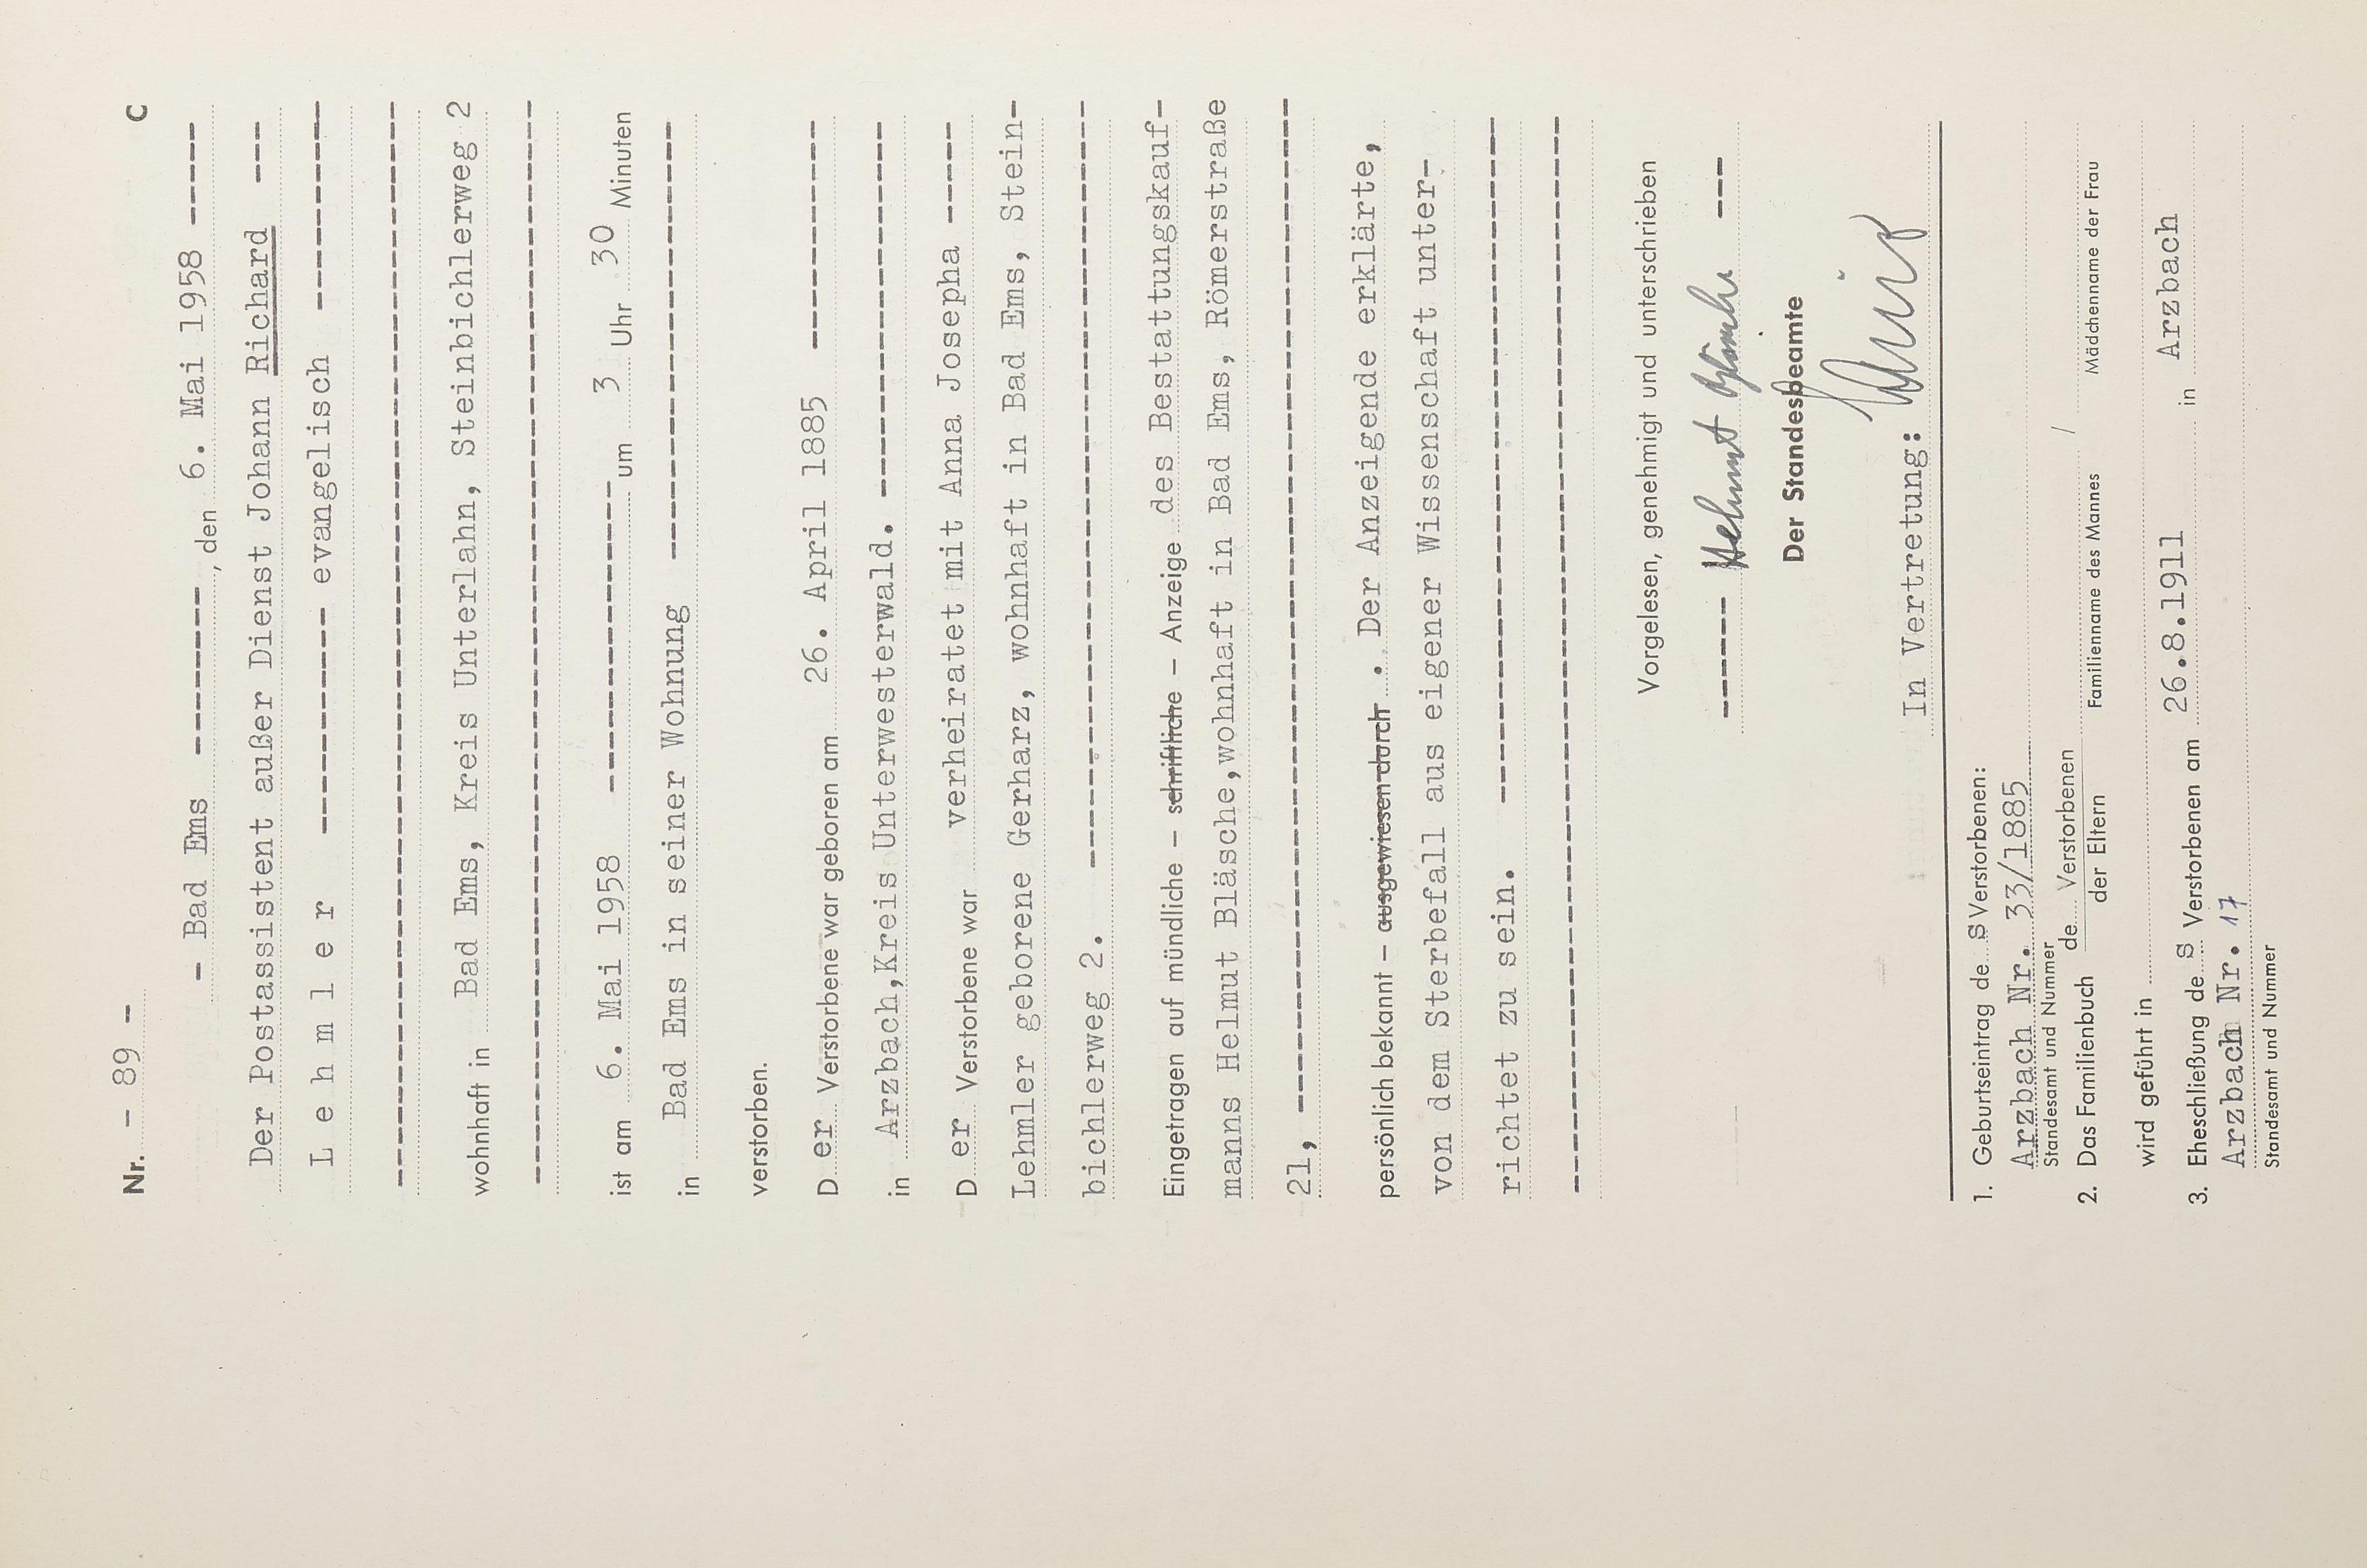 Nr. - 89 - C
- Bad Ems --------, den 6. Mai 1958 -----
Der Postassistent außer Dienst Johann Richard ---
L e h m l e r ----------- evangelisch ----------
wohnhaft in Bad Ems, Kreis Unterlahn, Steinbichlerweg 2
ist am 6. Mai 1958 --------------- um 3 Uhr 30 Minuten
in Bad Ems in seiner Wohnung ---------------------
verstorben.
Der Verstorbene war geboren am 26. April 1885 -----------
in Arzbach,Kreis Unterwesterwald. ------------------
Der Verstorbene war verheiratet mit Anna Josepha -----
Lehmler geborene Gerharz, wohnhaft in Bad Ems, Stein-
bichlerweg 2. ------------------------------------
Eingetragen auf mündliche – schriftliche – Anzeige des Bestattungskauf-
manns Helmut Bläsche,wohnhaft in Bad Ems, Römerstraße
21, ------------------------------------------------
persönlich bekannt – ausgewiesen durch . Der Anzeigende erklärte,
von dem Sterbefall aus eigener Wissenschaft unter-
richtet zu sein. ---------------------------------
Vorgelesen, genehmigt und unterschrieben
------ Helmut Bläsche ---
Der Standesbeamte
In Vertretung:
1. Geburtseintrag des Verstorbenen:
Arzbach Nr. 33/1885
Standesamt und Nummer
2. Das Familienbuch de Verstorbenen /
der Eltern Familienname des Mannes Mädchenname der Frau
wird geführt in
3. Eheschließung des Verstorbenen am 26.8.1911 in Arzbach
Arzbach Nr. 17
Standesamt und Nummer